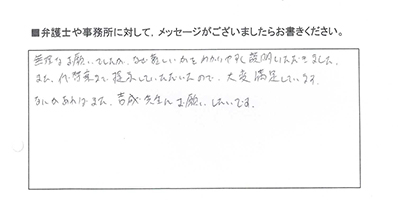 ■弁護士や事務所に対して、メッセージがございましたらお書きください。
無理なお願いでしたが、なぜ難しいかをわかりやすく説明いただきました。
また、代替案まで提示していただいたので、大変満足しています。
なにかあればまた、吉成先生にお願いしたいです。